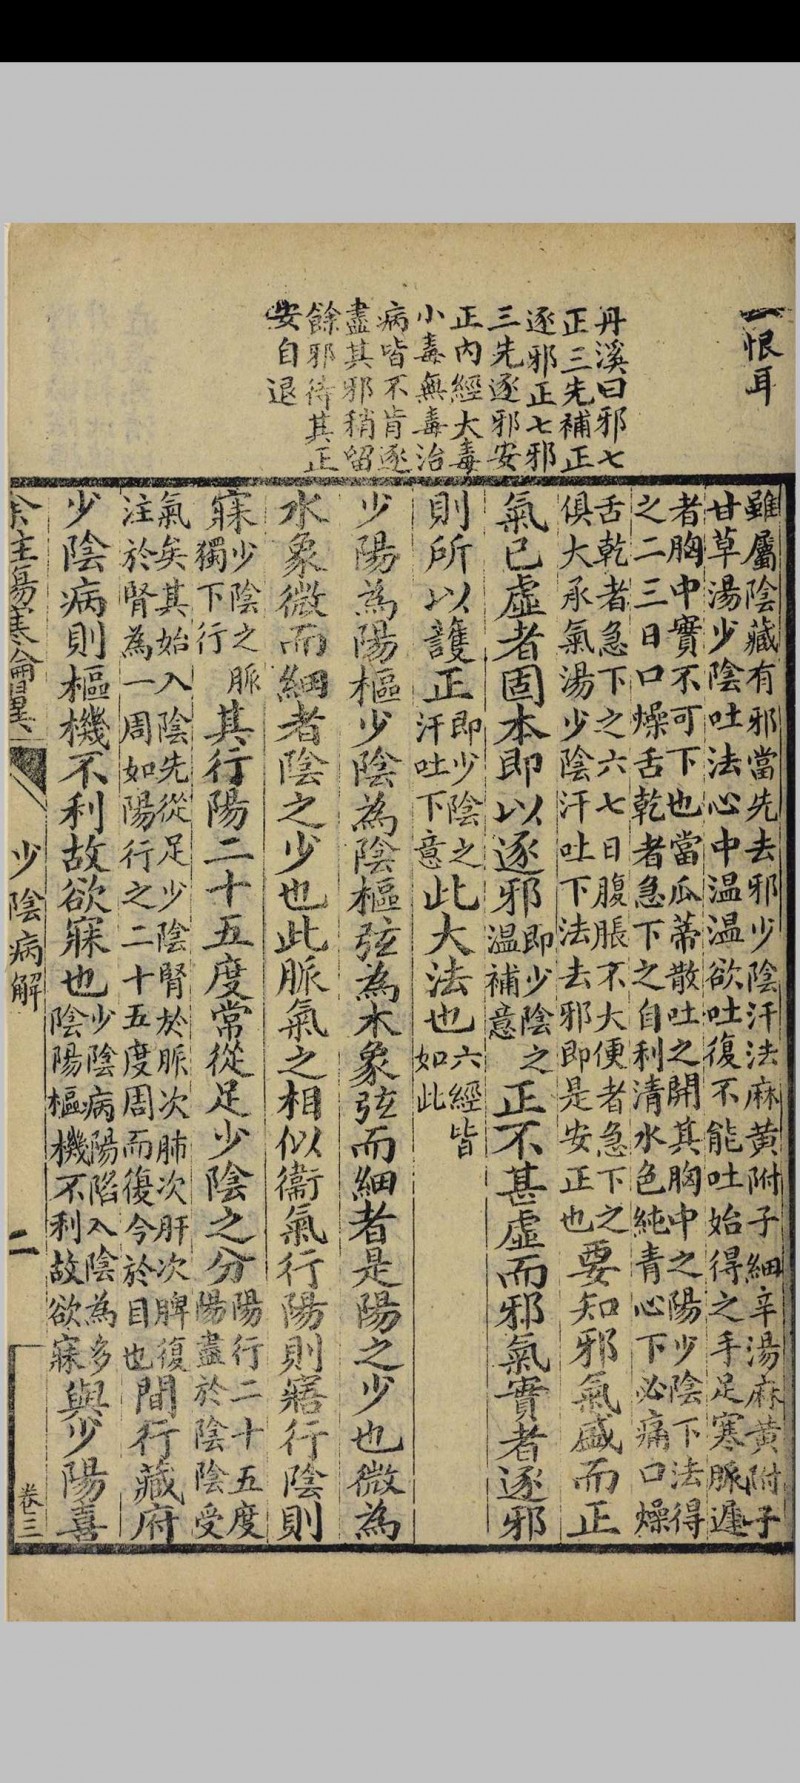 一恨耳
丹溪曰邪七
正三先補正
逐邪正七邪
三先逐邪安
正內經大毒
小毒無毒治
病皆不肯逐
盡其邪稍留
餘邪待其正
安自退
雖屬陰藏有邪當先去邪少陰汗法麻黃附子細辛湯麻黃附子
甘草湯少陰吐法心中温温欲吐復不能吐始得之手足寒脈遲
者胸中實不可下也當瓜蒂散吐之開其胸中之陽少陰下法得
之二三日口燥舌乾者急下之自利清水色純青心下必痛口燥
舌乾者急下之六七日腹脹不大便者急下之
俱大承氣湯少陰汗吐下法去邪即是安正也
要知邪氣盛而正
氣已虛者固本即以逐邪
即少陰之
温補意
正不甚虛而邪氣實者逐邪
則所以護正
即少陰之
汗吐下意
此大法也
六經皆
如此
少陽為陽樞少陰為陰樞弦為木象弦而細者是陽之少也微為
水象微而細者陰之少也此脈氣之相似衞氣行陽則寤行陰則
寐
少陰之脈
獨下行
其行陽二十五度常從足少陰之分
陽行二十五度
陽盡於陰陰受
氣矣其始入陰先從足少陰腎於脈次肺次肝次脾復
注於腎為一周如陽行之二十五度周而復今於目也
間行藏府
少陰病則樞機不利故欲寐也
少陰病陽陷入陰為多
陰陽樞機不利故欲寐
與少陽喜
余註傷寒論翼
少陰病解
二
卷三